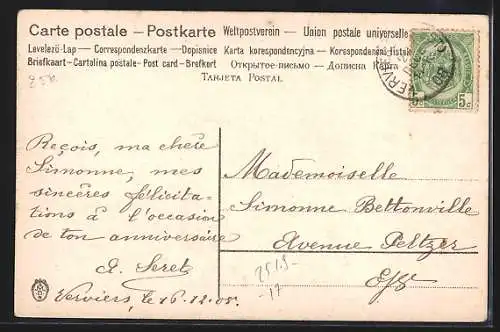 Carte postale – Postkarte Weltpostverein – Union postale universelle
Levelező-Lap — Correspondenzkarte — Dopisnice Karta korespondencyjna — Korespondenční lístek
Briefkaart – Cartolina postale – Post card – Brefkort Открытое-письмо — Дописна
Tarjeta Postal
VERVIERS
5c
Reçois, ma chère
Simonne, mes
sincères félicita-
tions à l'occasion
de ton anniversaire
Verviers, le 16.12.08.
Mademoiselle
Simonne Bettonville
Avenue Peltzer
E/V